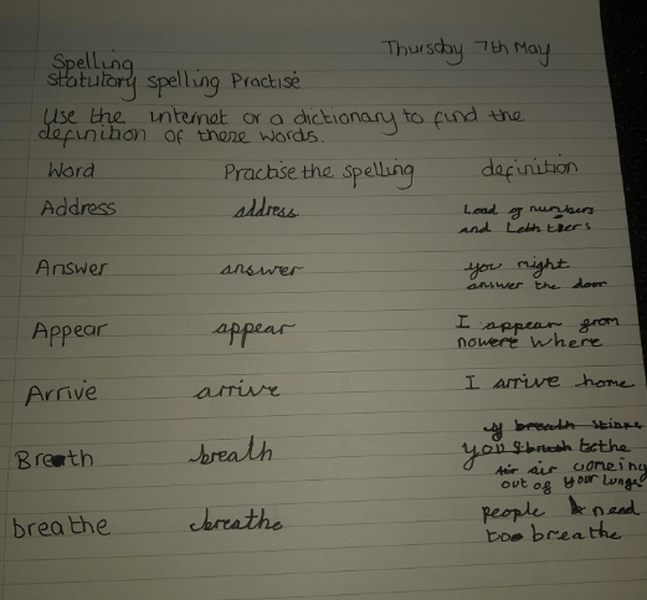 Thursday 7th May
Spelling
Statutory spelling Practise
Use the internet or a dictionary to find the
definition of these words.
Word Practise the spelling definition
Address address Load of numbers
and Lethters
Answer answer you might
answer the door
Appear appear I appear from
nowere where
Arrive arrive I arrive home
my breath stinks
Breath breath you the
air air comeing
out of your lungs
breathe breathe people need
too breathe